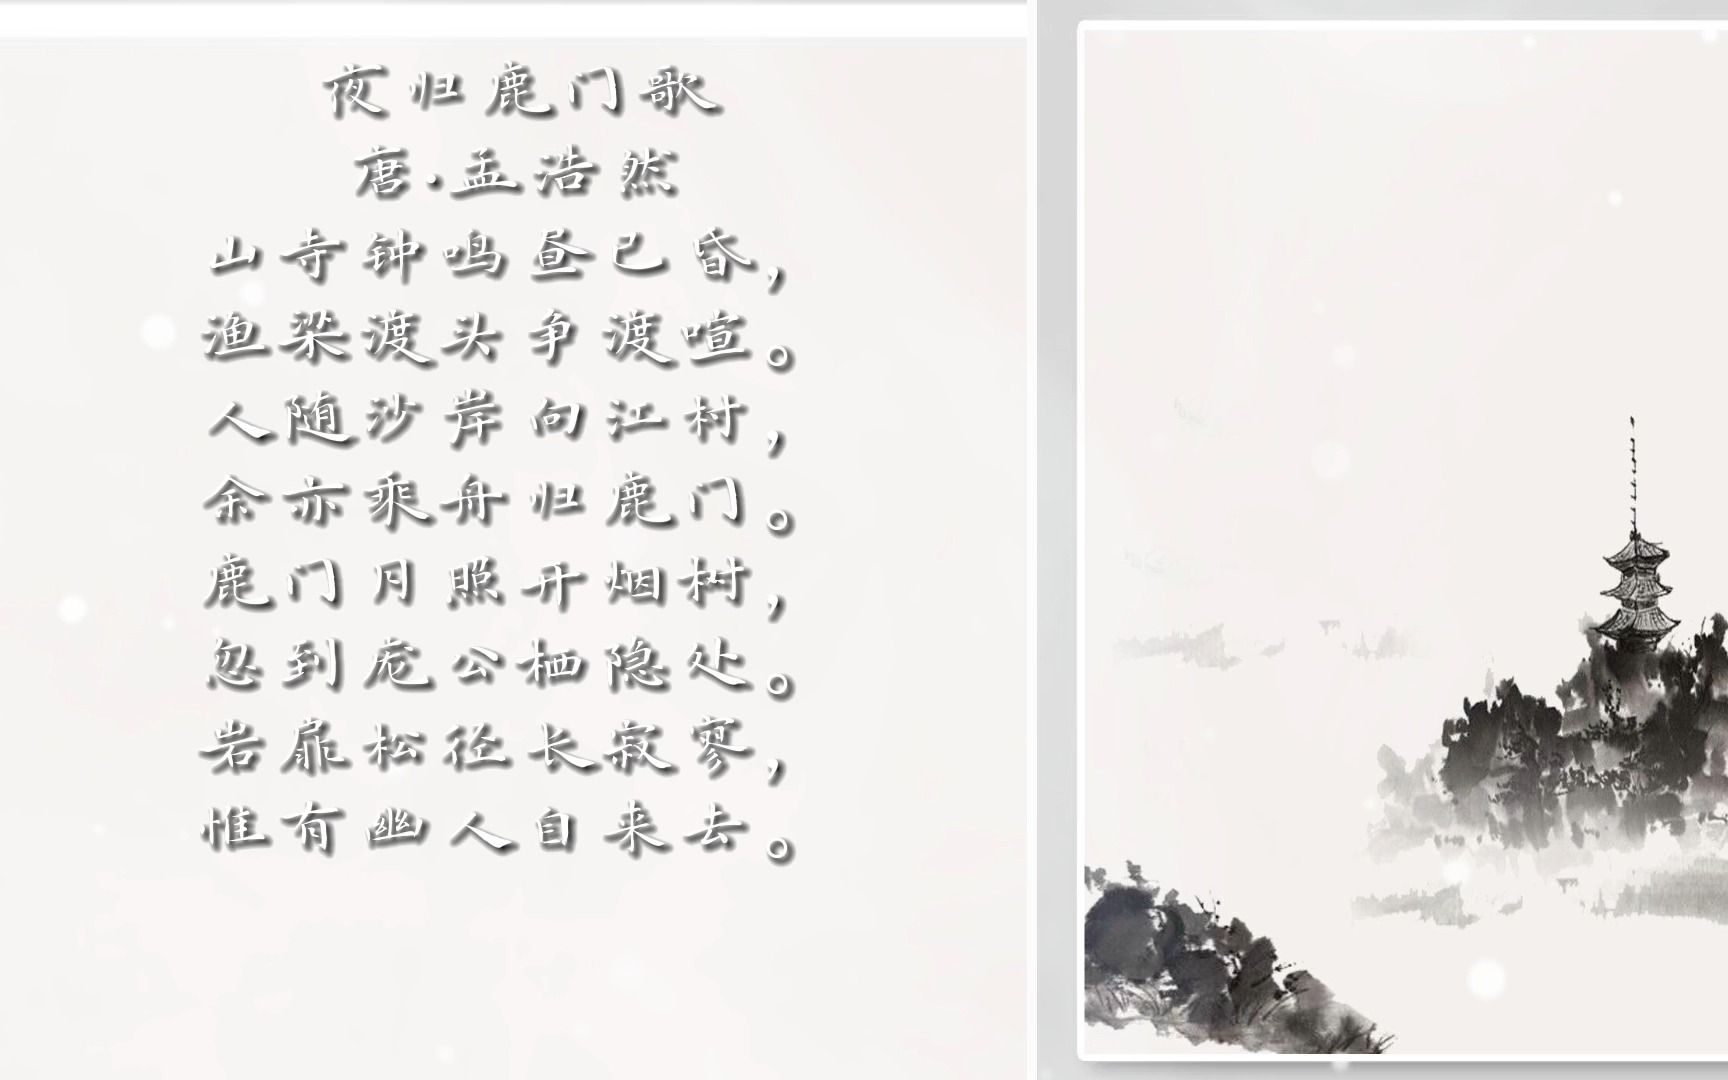 夜归鹿门歌
唐·孟浩然
山寺钟鸣昼已昏，
渔梁渡头争渡喧。
人随沙岸向江村，
余亦乘舟归鹿门。
鹿门月照开烟树，
忽到庞公栖隐处。
岩扉松径长寂寥，
惟有幽人自来去。